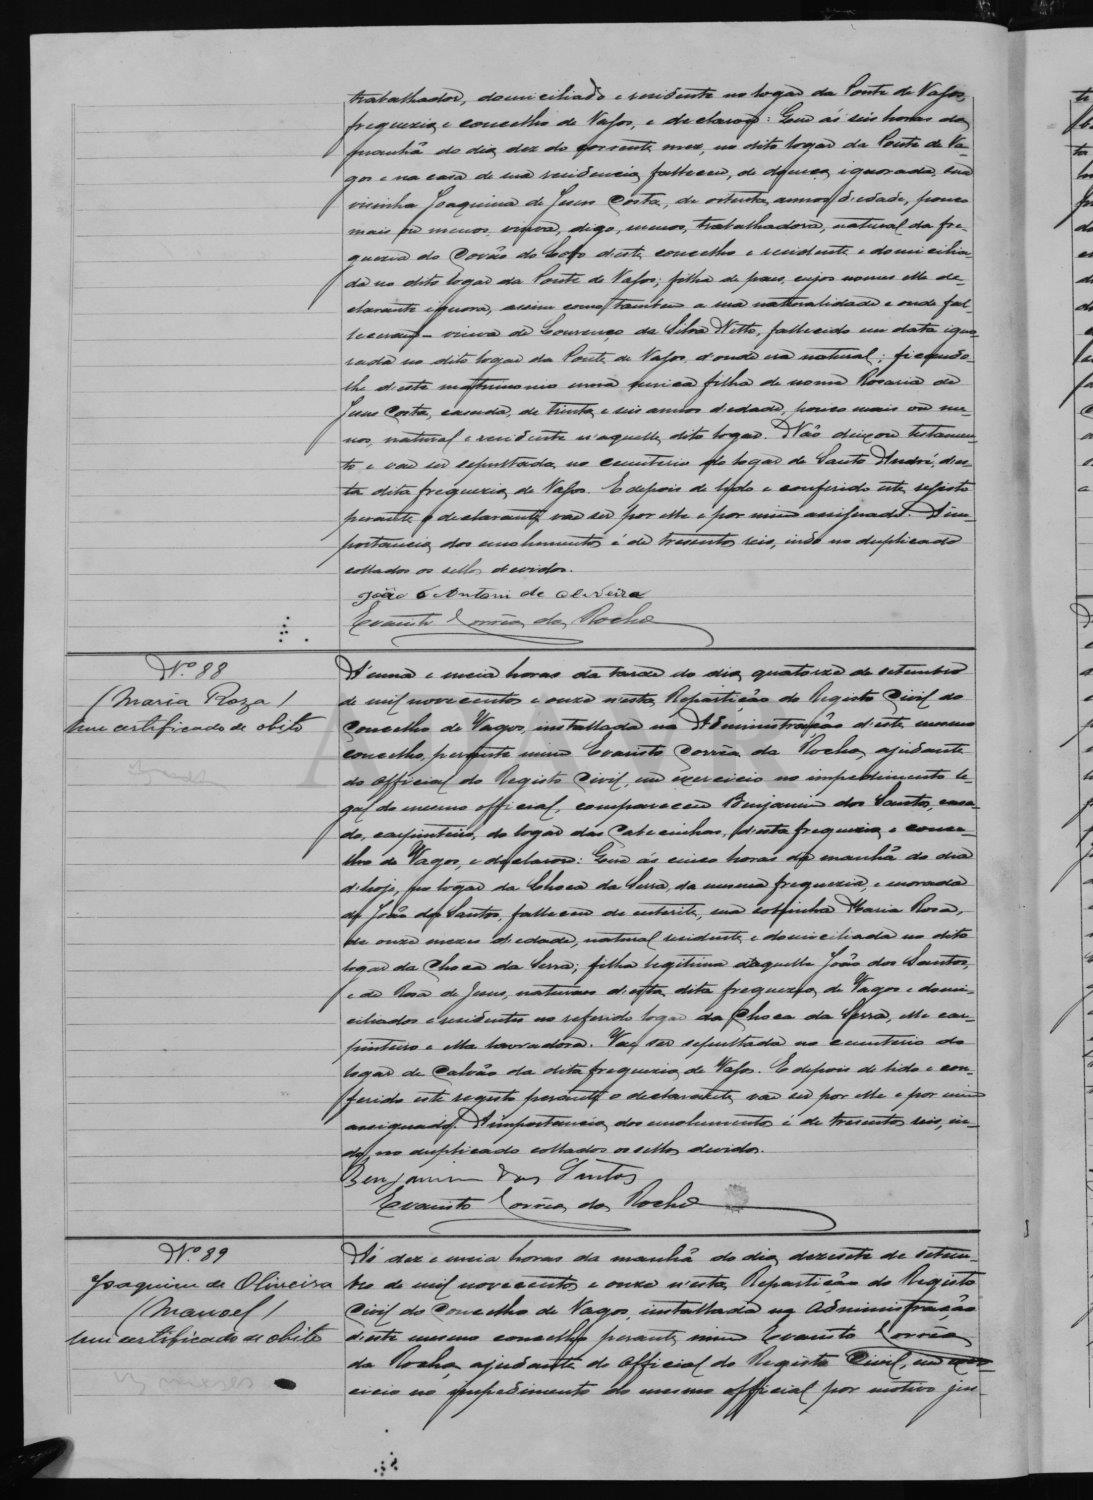 trabalhador, domiciliado e residente no logar da Ponte de Vagos,
freguezia e concelho de Vagos, e declarou: Que ás seis horas da
manhã do dia dez do corrente mez, no dito logar da Ponte de Va-
gos e na casa de sua residencia, falleceu, de doença ignorada, sua
visinha Joaquina de Jesus Costa, de oitenta annos d'edade, pouco
mais ou menos, viuva, digo, menos, trabalhadora, natural da fre-
guezia do Covão do Lobo d'este concelho e residente e domicilia-
da no dito logar da Ponte de Vagos; filha de paes, cujos nomes elle de-
clarante ignora, assim como tambem a sua naturalidade e onde fal-
leceram - viuva de Lourenço da Silva Netto, fallecido em data igno-
rada no dito logar da Ponte de Vagos, d'onde era natural; ficando-
lhe d'este matrimonio uma unica filha de nome Rosaria de
Jesus Costa, casada, de trinta e seis annos d'edade, pouco mais ou me-
nos, natural e residente n'aquelle dito logar. Não deixou testamen-
to e vae ser sepultada no cemiterio do logar de Santo André, d'es-
ta dita freguezia de Vagos. E depois de lido e conferido este registo
perante o declarante, vae ser por elle e por mim assignado. A im-
portancia dos emolumentos é de tresentos reis, indo no duplicado
collados os sellos devidos.
João Antoni de Oliveira
Evaristo Corrêa da Rocha
Nº 88
(Maria Roza)
Tem certificado de obito
Á uma e meia horas da tarde do dia quatorze de setembro
de mil novecentos e onze n'esta Repartição do Registo Civil do
Concelho de Vagos, installada na Administração d'este mesmo
concelho, perante mim Evaristo Corrêa da Rocha, ajudante
do Official do Registo Civil, em exercicio no impedimento le-
gal do mesmo official, compareceu Benjamin dos Santos, casa-
do, carpinteiro, do logar das Cabecinhas, d'esta freguezia e conce-
lho de Vagos, e declarou: Que ás cinco horas da manhã do dia
d'hoje, no logar da Choca da Serra, da mesma freguezia, e morada
de João dos Santos, falleceu de enterite, sua sobrinha Maria Rosa,
de onze mezes d'edade, natural, residente e domiciliada no dito
logar da Choca da Serra; filha legitima d'aquelle João dos Santos,
e de Rosa de Jesus, naturaes d'esta dita freguezia de Vagos e domi-
ciliados e residentes no referido logar da Choca da Serra, elle car-
pinteiro e ella lavradora. Vae ser sepultada no cemiterio do
logar de Calvão da dita freguezia de Vagos. E depois de lido e con-
ferido este registo perante o declarante, vae ser por elle e por mim
assignado. A importancia dos emolumentos é de tresentos reis, in-
do no duplicado collados os sellos devidos.
Benjamim dos Santos
Evaristo Corrêa da Rocha
Nº 89
Joaquim de Oliveira
(Manoel)
Tem certificado de obito
mezes
Ás dez e meia horas da manhã do dia dezesete de setem-
bro de mil novecentos e onze n'esta Repartição do Registo
Civil do Concelho de Vagos, installada na Administração
d'este mesmo concelho, perante mim Evaristo Corrêa
da Rocha, ajudante do Official do Registo Civil, em exer-
cicio no impedimento do mesmo official por motivo jus-